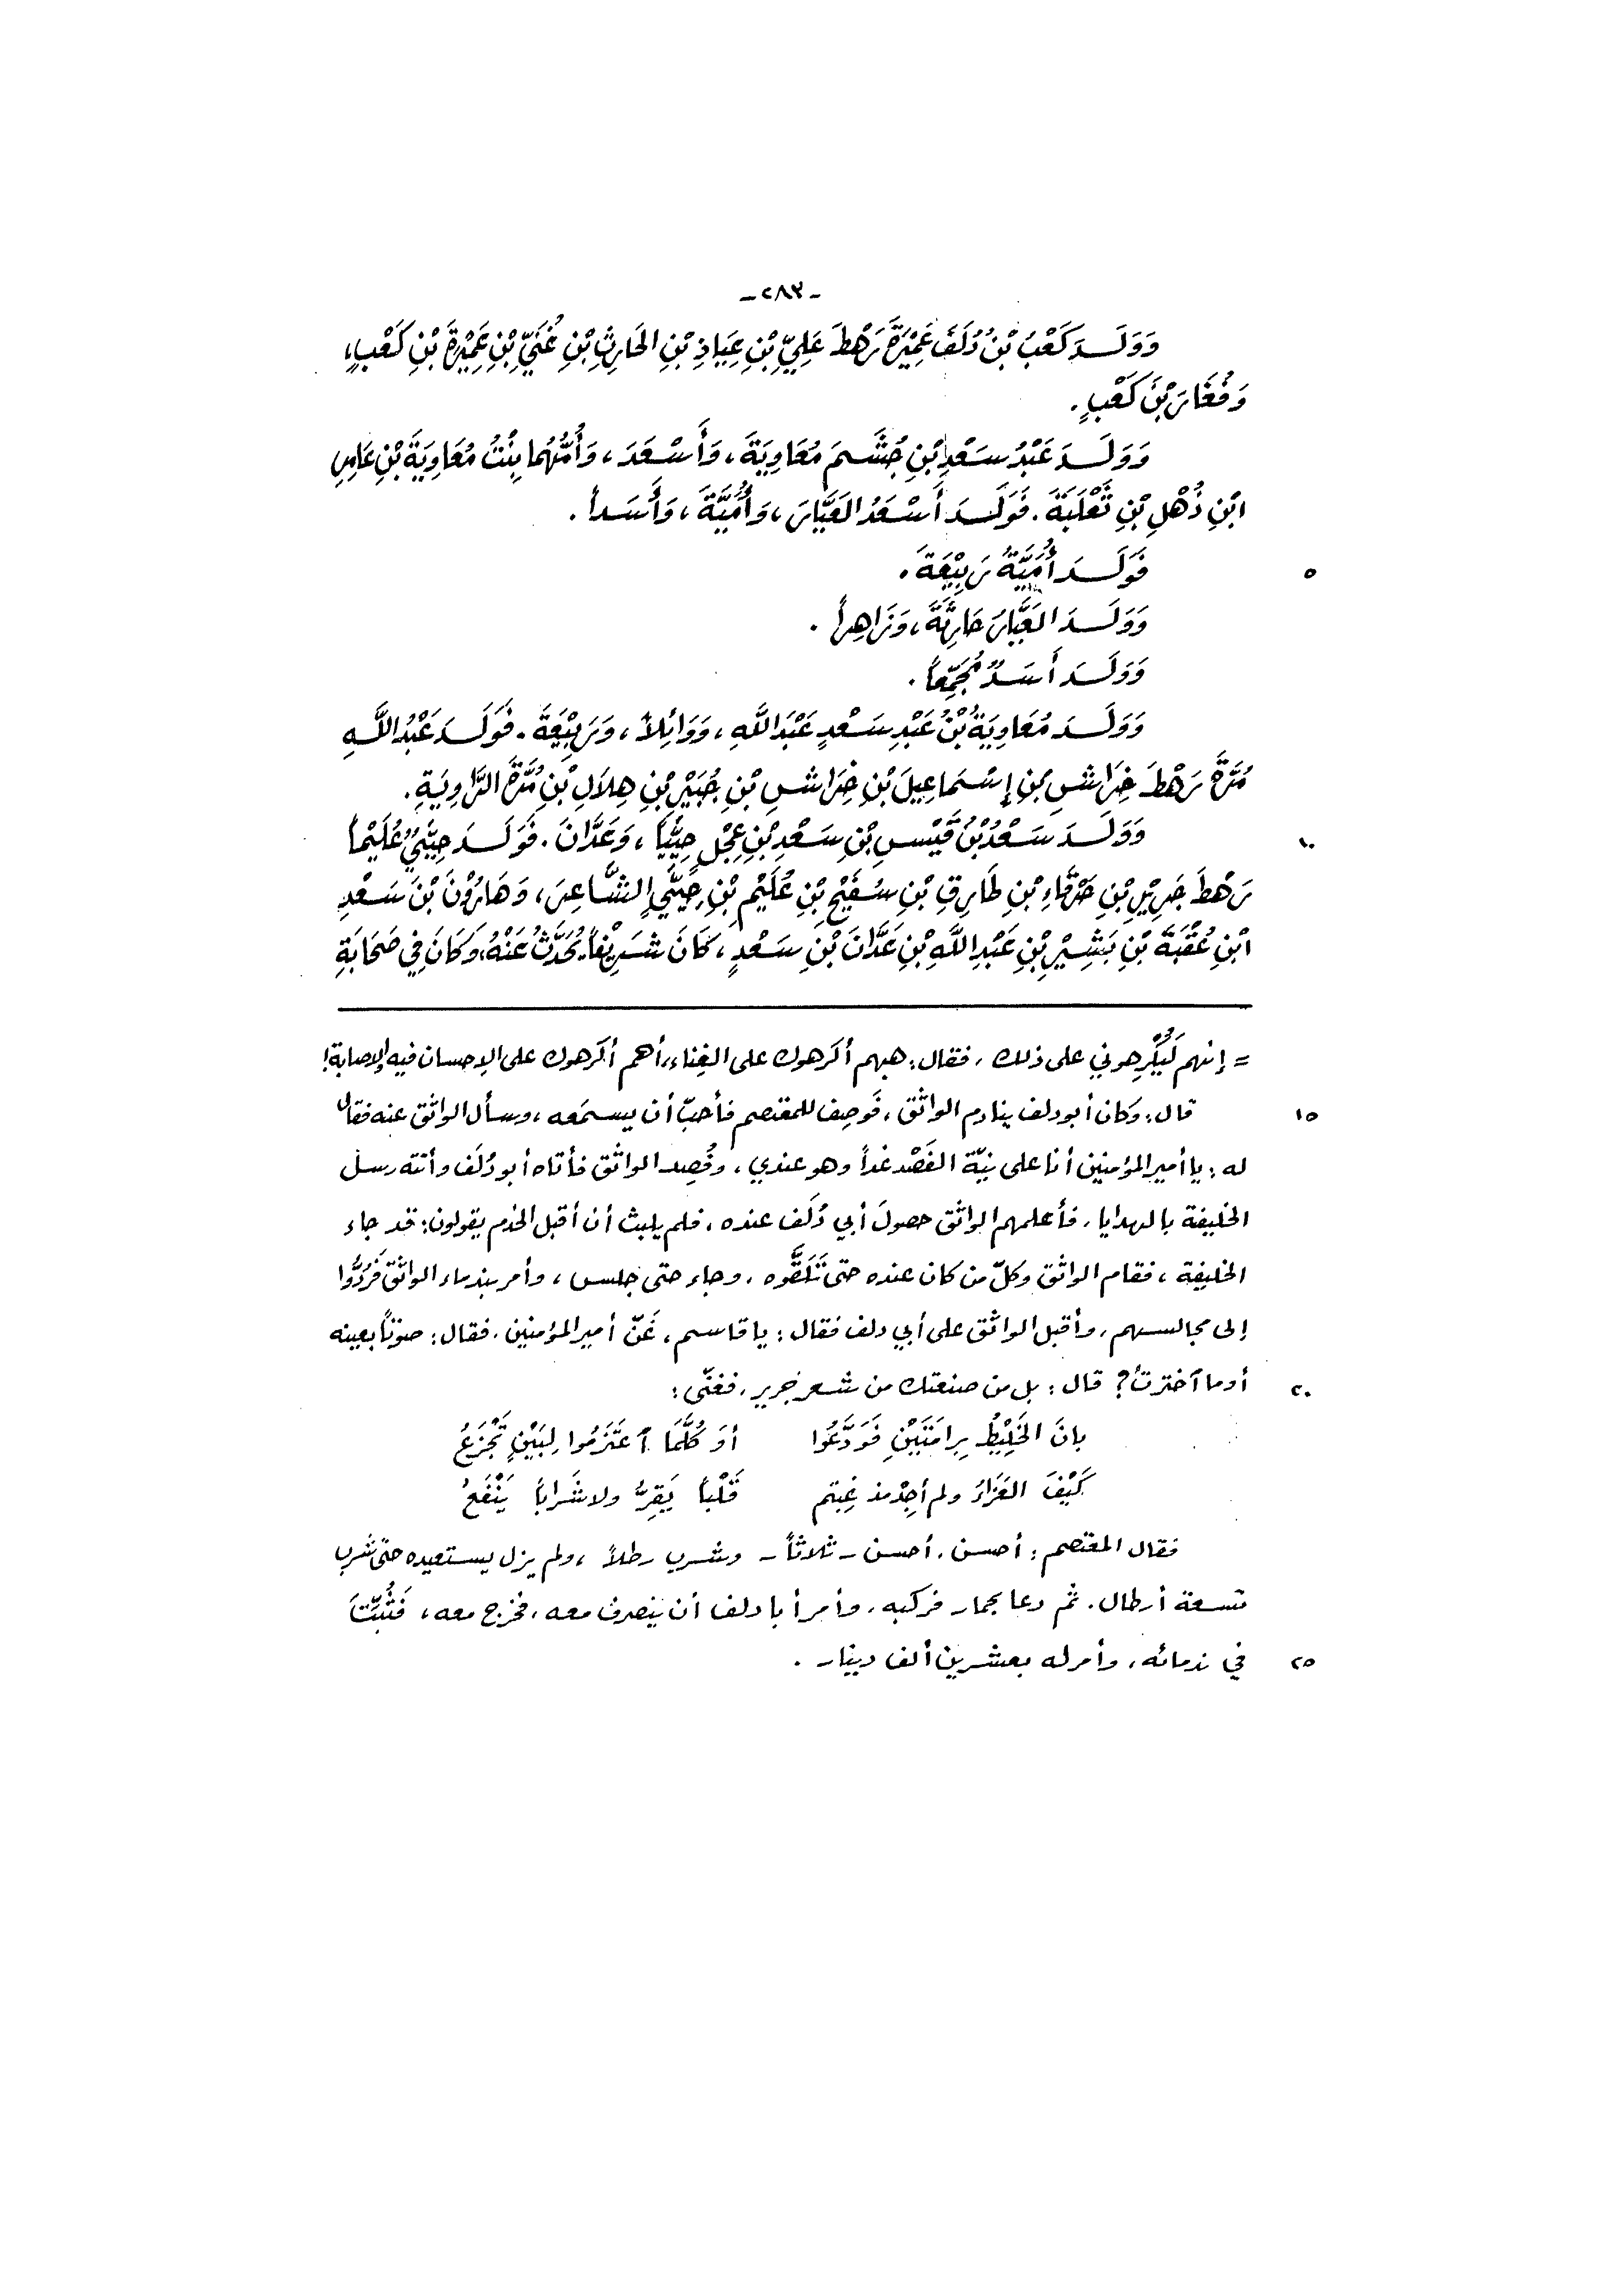 -٢٨٣-
وَوَلَدَ كَعْبُ بْنُ دُلَفَ عَمِيْرَةَ رَهْطَ عَلِيِّ بْنِ عِيَاذِ بْنِ الحَارِثِ بْنِ غُنَيِّ بْنِ عَمِيْرَةَ بْنِ كَعْبٍ،
وَفُغَارَ بْنَ كَعْبٍ.
وَوَلَدَ عَبْدُ سَعْدِ بْنِ جُشَمَ مُعَاوِيَةَ، وَأَسْعَدَ، وَأُمُّهُمَا بِنْتُ مُعَاوِيَةَ بْنِ عَامِرِ
ابْنِ ذُهْلِ بْنِ ثَعْلَبَةَ. فَوَلَدَ أَسْعَدُ العَيَّارَ، وَأُمَيَّةَ، وَأَسَداً.
٥ فَوَلَدَ أُمَيَّةُ رَبِيْعَةَ.
وَوَلَدَ العَيَّارُ حَارِثَةَ، وَزَاهِراً.
وَوَلَدَ أَسَدٌ مُجَمِّعاً.
وَوَلَدَ مُعَاوِيَةُ بْنُ عَبْدِ سَعْدٍ عَبْدَ اللَّهِ، وَوَائِلاً، وَرَبِيْعَةَ. فَوَلَدَ عَبْدُ اللَّهِ
مُرَّةَ رَهْطَ خِرَاشِ بْنِ إِسْمَاعِيلَ بْنِ خِرَاشِ بْنِ جُبَيْرِ بْنِ هِلَالِ بْنِ مُرَّةَ الرَّاوِيَةِ.
١٠ وَوَلَدَ سَعْدُ بْنُ قَيْسِ بْنِ سَعْدِ بْنِ عِجْلٍ حِيَيَّاً، وَعَدَّانَ. فَوَلَدَ حِيَيٌّ عُلَيْماً
رَهْطَ جَرِيْرِ بْنِ خَرْقَاءِ بْنِ طَارِقِ بْنِ سُفَيْحِ بْنِ عُلَيْمِ بْنِ حِيَيٍّ الشَّاعِرِ، وَهَارُوْنَ بْنَ سَعْدِ
ابْنِ عُقْبَةَ بْنِ بَشِيْرِ بْنِ عَبْدِ اللَّهِ بْنِ عَدَّانَ بْنِ سَعْدٍ، كَانَ شَرِيْفاً يُحَدَّثُ عَنْهُ، وَكَانَ فِي صَحَابَةِ
= إنهم لَيُكْرِهوني على ذلك، فقال: هبهم أكرهوك على الغِناء، أهم أكرهوك على الإحسان فيه والإصابة!
١٥ قال: وكان أبو دلف ينادم الواثق، فَوصِف للمعتصم فأحبّ أن يسمَعه، وسأل الواثق عنه فقال
له: يا أمير المؤمنين أنا على نيّة الفَصْد غداً وهو عندي، وفُصِد الواثق فأتاه أبو دُلَف وأتته رسل
الخليفة بالهدايا، فأعلمهم الواثق حصولَ أبي دُلَف عنده، فلم يلبث أن أقبل الخدم يقولون: قد جاء
الخليفة، فقام الواثق وكلّ من كان عنده حتى تَلَقَّوه، وجاء حتى جلس، وأمر بندماء الواثق فَرُدُّوا
إلى مجالسهم، وأقبل الواثق على أبي دلف فقال: يا قاسم، غَنّ أمير المؤمنين، فقال: صوتاً بعينه
٢٠ أو ما ٱخترتُ؟ قال: بل من صنعتك من شعر جرير، فغنّى:
بانَ الخَلِيْطُ بِرامَتَيْنِ فَوَدَّعُوا أوَ كُلَّمَا ٱعتَزَمُوا لِبَيْنٍ تَجْزَعُ
كَيْفَ العَزَاءُ ولم أجِدْ مذ غِبتم قَلْباً يَقِرُّ ولا شَراباً يَنْفَعُ
فقال المعتصم: أحسن، أحسن - ثلاثاً - وشرب رطلاً، ولم يزل يستعيده حتى شرب
تسعة أرطال. ثم دعا بحمار فركبه، وأمر أبا دلف أن ينصرف معه، فخرج معه، فَثُبِّتَ
٢٥ في ندمائه، وأمر له بعشرين ألف دينار.